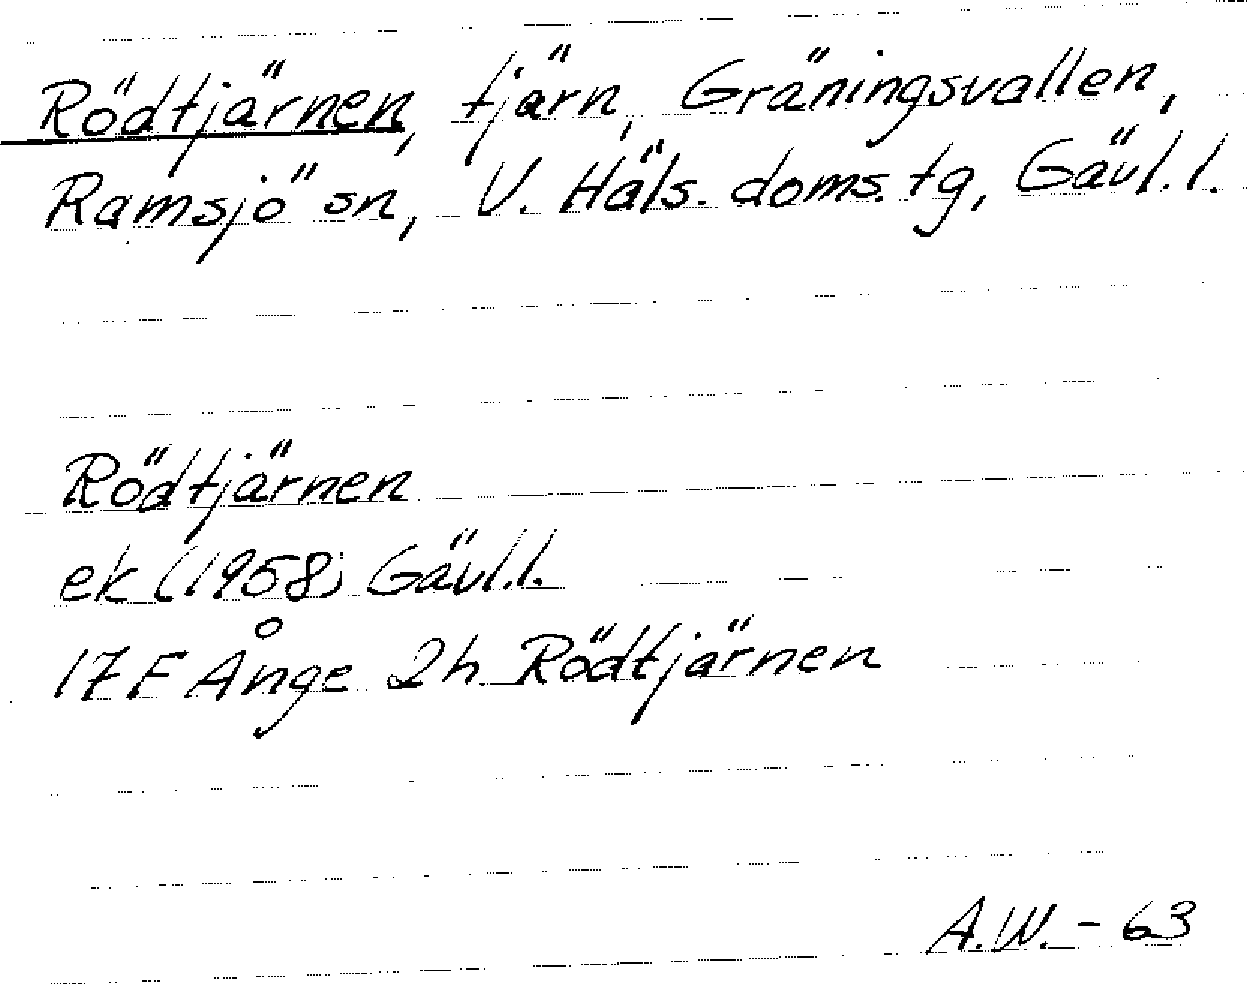 Rödtjärnen, tjärn, Gräningsvallen,
Ramsjö sn, V. Häls. doms. tg, Gävl. l.
Rödtjärnen
ek (1958) Gävl. l.
17 F Ånge 2h Rödtjärnen
A.W. - 63